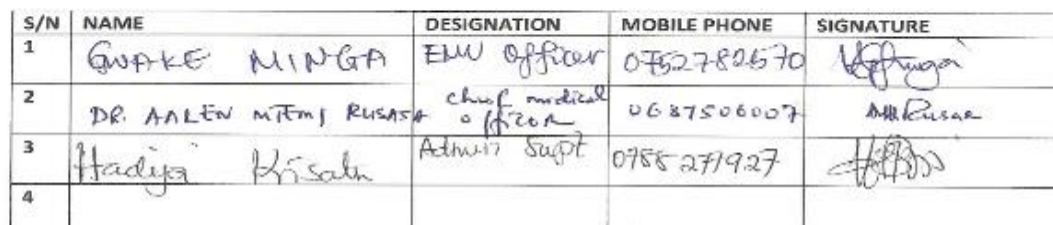 S/N NAME DESIGNATION MOBILE PHONE SIGNATURE
1 GWAKE MINGA EMU Officer 0752782570
2 DR. AALEN MTEMI RUSASA chief medical officer 0687506007
3 Hadija Admin Supt 0788271927
4